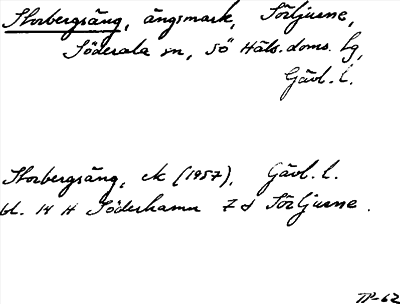 Storbergsäng, ängsmark, Törljusne,
Söderala sn, Sö Häls. doms. lg,
Gävl. l.
Storbergsäng, ek (1957), Gävl. l.
bl. 14 H Söderhamn 7 d Sörljusne.
TP-62